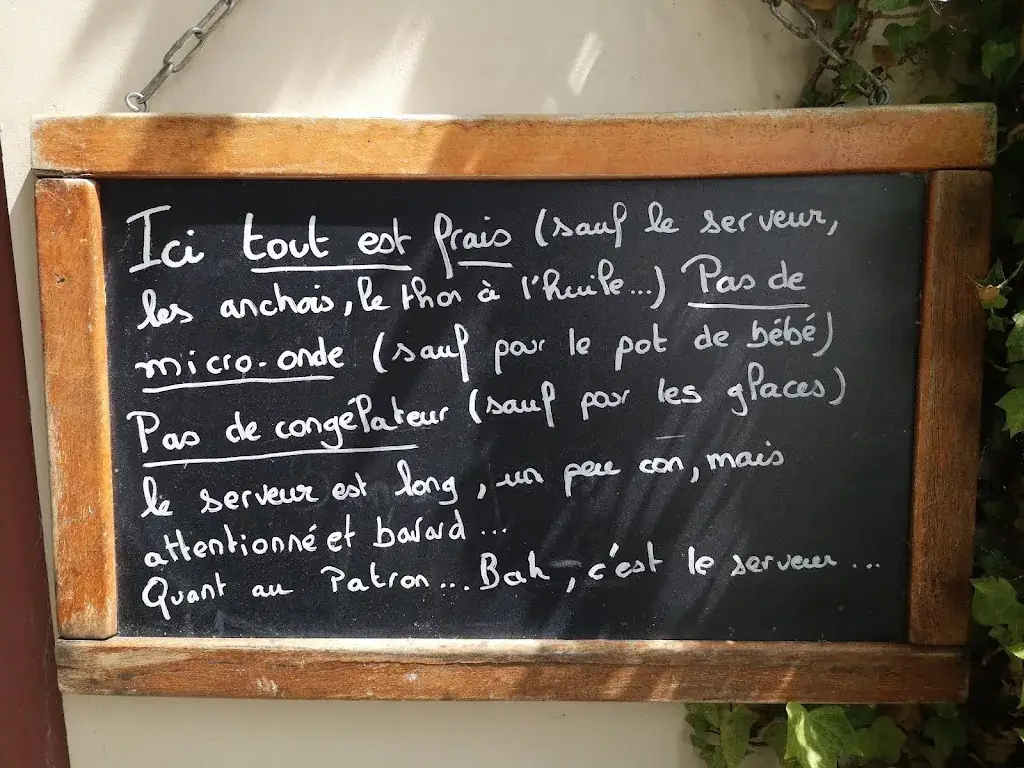 Ici tout est frais (sauf le serveur,
les anchois, le thon à l'huile...) Pas de
micro-onde (sauf pour le pot de bébé)
Pas de congélateur (sauf pour les glaces)
le serveur est long, un peu con, mais
attentionné et bavard...
Quant au Patron... Bah, c'est le serveur...